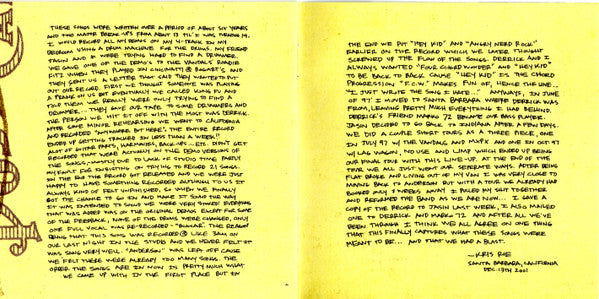 THESE SONGS WERE WRITTEN OVER A PERIOD OF ABOUT SIX YEARS
AND TWO MAJOR BREAK-UPS FROM ABOUT 13 TIL' I WAS TURNING 19.
I WOULD RECORD ALL MY DEMOS ON MY 4-TRACK IN MY
BEDROOM USING A DRUM MACHINE FOR THE DRUMS. MY FRIEND
JASON AND I WERE TRYING HARD TO FIND A DRUMMER.
WE GAVE ONE OF THE DEMO'S TO THE VANDALS' ROADIE
FITZ WHEN THEY PLAYED IN CINCINNATI @ BOGART'S, AND
THEY SENT US A LETTER THAT SAID THEY WANTED TO PUT
OUT OUR RECORD. FIRST WE THOUGHT SOMEONE WAS PLAYING
A PRANK ON US BUT EVENTUALLY WE CALLED KUNG FU AND
TOLD THEM WE REALLY WERE ONLY TRYING TO FIND A
DRUMMER... THEY GAVE OUR TAPE TO SOME DRUMMERS AND
THE PERSON WE HIT IT OFF WITH THE MOST WAS DERRICK.
AFTER SOME MINOR REHEARSING WE WENT TO CALIFORNIA
AND RECORDED "ANYWHERE BUT HERE". THE ENTIRE RECORD
ENDED UP GETTING TRACKED IN LESS THAN A WEEK!!
MOST OF GUITAR PARTS, HARMONIES, BACK-UPS... ETC. DIDN'T GET
RECORDED THAT WERE ACTUALLY ON THE DEMO VERSIONS OF
THE SONGS, MAINLY DUE TO LACK OF STUDIO TIME PARTLY
MY FAULT FOR INSISTING ON TRYING TO RECORD 21 SONGS.
IN THE END THE RECORD GOT RELEASED AND WE WERE JUST
HAPPY TO HAVE SOMETHING RECORDED ALTHOUGH TO US IT
ALWAYS KIND OF FELT UNFINISHED. SO WHEN WE FINALLY
GOT THE CHANCE TO GO IN AND MAKE IT SOUND THE WAY
IT WAS INTENDED TO SOUND WE WERE VERY STOKED! EVERYTHING
THAT WAS ADDED WAS ON THE ORIGINAL DEMOS EXCEPT FOR SOME
OF THE FEEDBACK. NONE OF THE DEMOS WERE CHANGED, ONLY
ONE FULL VOCAL WAS RE-RECORDED - "SUMMER". THE REASON
BEING THAT THIS SONG WAS RECORDED @ LIKE 3AM ON
OUR LAST NIGHT IN THE STUDIO AND WE NEVER FELT IT
WAS SUNG VERY WELL. "ANDERSON" WAS LEFT OFF CAUSE
WE FELT THERE WERE ALREADY TOO MANY SONGS. THE
ORDER THE SONGS ARE IN NOW IS PRETTY MUCH WHAT
WE CAME UP WITH IN THE FIRST PLACE BUT IN
THE END WE PUT "HEY KID" AND "ANGRY NERD ROCK"
EARLIER ON THE RECORD WHICH WE LATER THOUGHT
SCREWED UP THE FLOW OF THE SONGS. DERRICK AND I
ALWAYS WANTED "FOUR CHORD WONDER" AND "HEY KID"
TO BE BACK TO BACK CAUSE "HEY KID" IS THE CHORD
PROGRESSION "F.C.W." MAKES FUN OF, HENCE THE LINE...
"I JUST WROTE THE SONG I HATE..." ANYWAYS, IN JUNE
OF 97' I MOVED TO SANTA BARBARA WHERE DERRICK WAS
FROM, LEAVING PRETTY MUCH EVERYTHING I HAD BEHIND.
DERRICK'S FRIEND MARKO 72 BECAME OUR BASS PLAYER.
JASON DECIDED TO GO BACK TO INDIANA AFTER A FEW DAYS.
WE DID A COUPLE SHORT TOURS AS A THREE PIECE, ONE
IN JULY 97 W/ THE VANDALS AND MXPX AND ONE IN OCT 97
W/ LAG WAGON, NO USE AND LIMP WHICH ENDED UP BEING
OUR FINAL TOUR WITH THIS LINE-UP. AT THE END OF THE
TOUR WE ALL JUST WENT OUR SEPERATE WAYS. AFTER BEING
FLAT BROKE AND LIVING OUT OF MY VAN I WAS VERY CLOSE TO
MOVING BACK TO ANDERSON BUT WITH A TOUR WE ALREADY HAD
BOOKED ONLY 3 WEEKS AWAY I PULLED MY SHIT TOGETHER
AND REFORMED THE BAND AS WE ARE NOW... I GAVE A
COPY OF THE RECORD TO JASON LAST WEEK, I ALSO MAILED
ONE TO DERRICK AND MARKO 72 AND AFTER ALL WE'VE
BEEN THROUGH I THINK WE ALL AGREE ON ONE THING
THAT THIS FINALLY CAPTURES WHAT THESE SONGS WERE
MEANT TO BE... AND THAT WE HAD A BLAST.
—KRIS ROE
SANTA BARBARA, CALIFORNIA
DEC. 13TH 2001